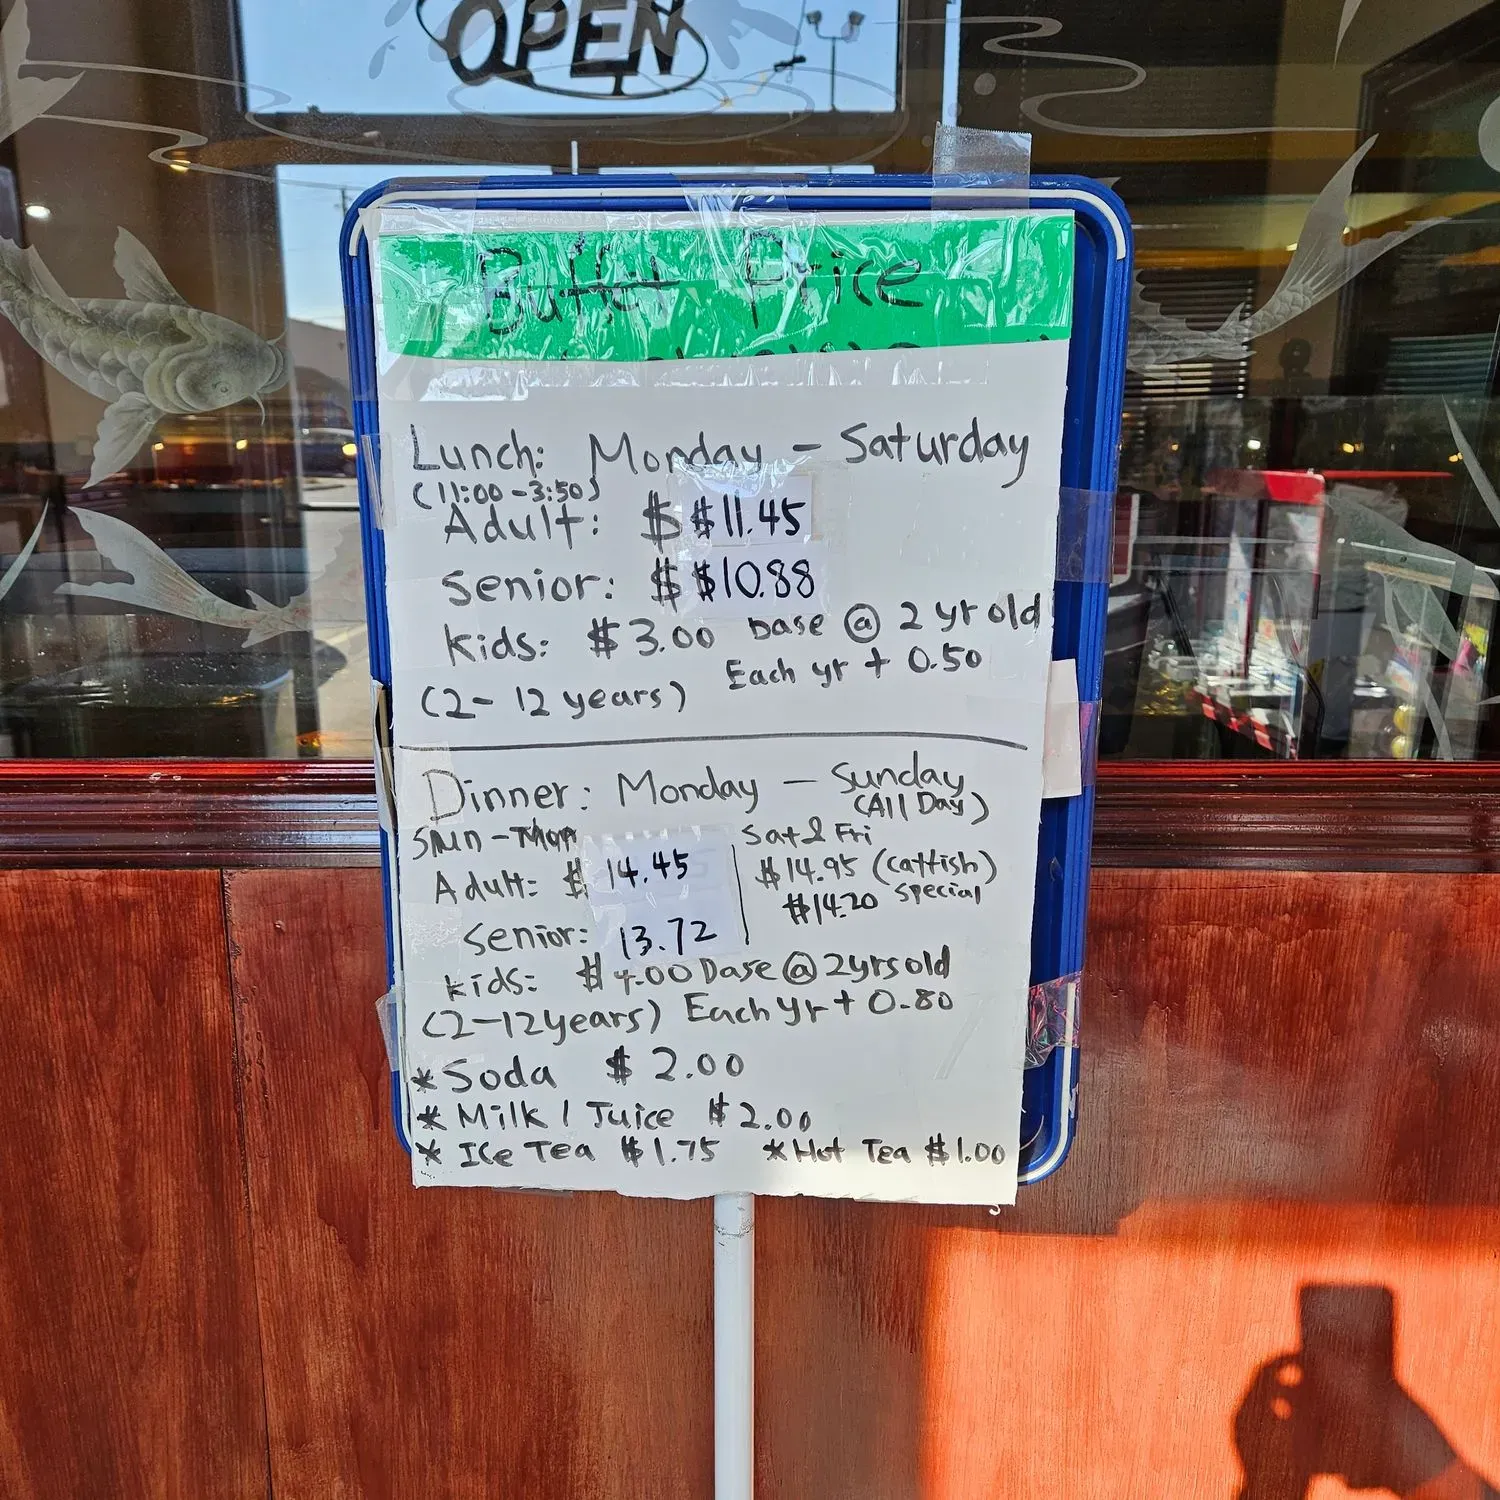 OPEN
Buffet Price
Lunch: Monday - Saturday
(11:00 - 3:50)
Adult: $ $11.45
Senior: $ $10.88
kids: $3.00 base @ 2 yr old
Each yr + 0.50
(2- 12 years)
Dinner: Monday - Sunday
(All Day)
Sun - Sat & Fri
Adult: $ 14.45 $14.95 (catfish)
$14.20 special
Senior: 13.72
kids: $4.00 base @ 2yrs old
(2-12years) Each yr + 0.80
*Soda $ 2.00
*Milk / Juice $2.00
*Ice Tea $1.75 *Hot Tea $1.00